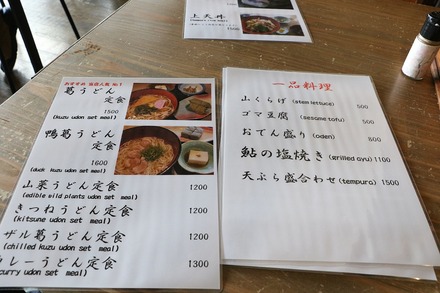 上天丼
1500
おすすめ 当店人気 No.1
葛うどん
定食
1500
(kuzu udon set meal)
鴨葛うどん
定食
1600
(duck kuzu udon set meal)
山菜うどん定食 1200
(edible wild plants udon set meal)
きつねうどん定食 1200
(kitsune udon set meal)
ザル葛うどん定食 1200
(chilled kuzu udon set meal)
カレーうどん定食 1300
(curry udon set meal)
一品料理
山くらげ (stem lettuce) 500
ゴマ豆腐 (sesame tofu) 500
おでん盛り (oden) 800
鮎の塩焼き (grilled ayu) 1100
天ぷら盛合わせ (tempura) 1500